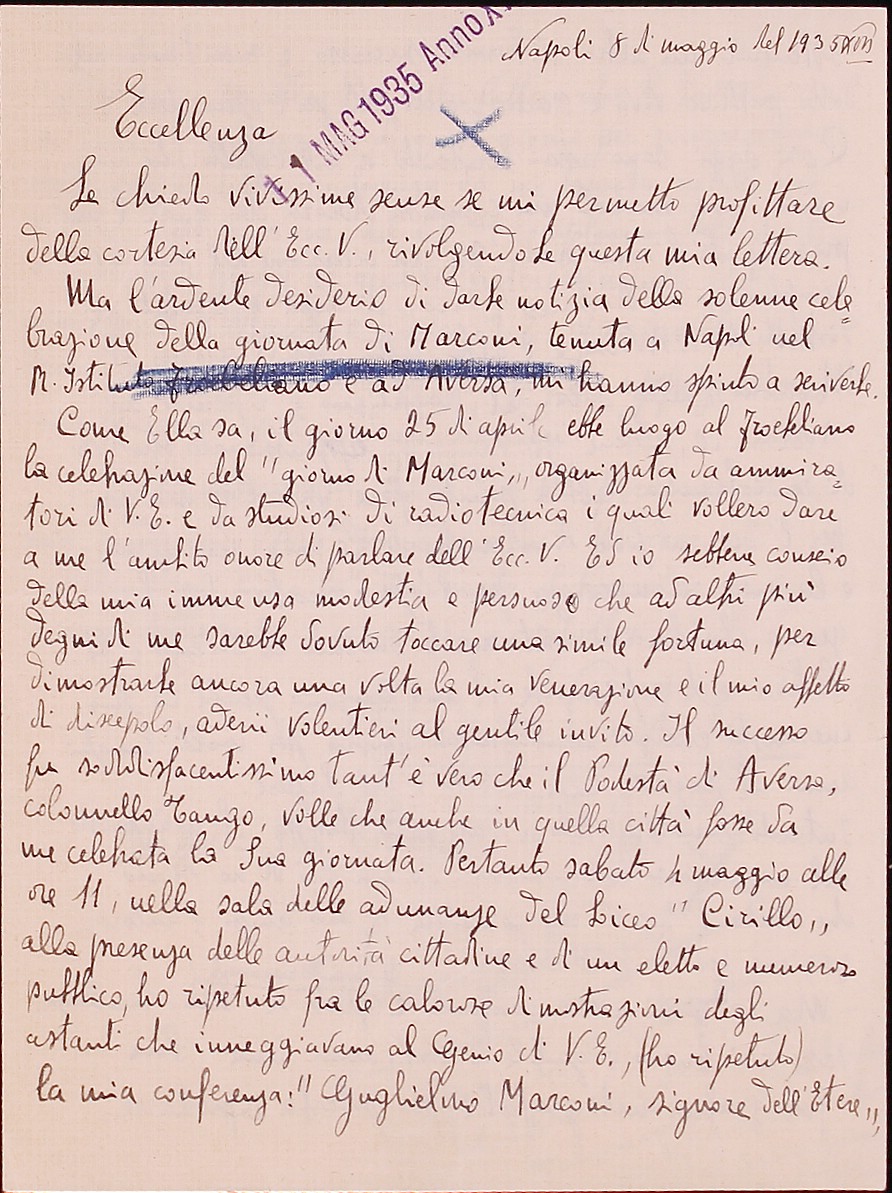 Napoli 8 di maggio del 1935 XIII
1 MAG 1935 Anno X
Eccellenza
Le chiedo vivissime scuse se mi permetto profittare
della cortesia dell'Ecc. V., rivolgendoLe questa mia lettera.
Ma l'ardente desiderio di darLe notizia della solenne cele=
brazione della giornata di Marconi, tenuta a Napoli nel
R. Istituto Froebeliano e ad Aversa, mi hanno spinto a scriverLe.
Come Ella sa, il giorno 25 di aprile ebbe luogo al Froebeliano
la celebrazione del "giorno di Marconi,, organizzata da ammira=
tori di V. E. e da studiosi di radiotecnica i quali vollero dare
a me l'ambito onore di parlare dell'Ecc. V. Ed io sebbene conscio
della mia immensa modestia e persuaso che ad altri più
degni di me sarebbe dovuto toccare una simile fortuna, per
dimostrarLe ancora una volta la mia venerazione e il mio affetto
di discepolo, aderii volentieri al gentile invito. Il successo
fu soddisfacentissimo tant'è vero che il Podestà di Aversa,
colonnello Tango, volle che anche in quella città fosse da
me celebrata la Sua giornata. Pertanto sabato 4 maggio alle
ore 11, nella sala delle adunanze del Liceo "Cirillo,,
alla presenza delle autorità cittadine e di un eletto e numeroso
pubblico, ho ripetuto fra le calorose dimostrazioni degli
astanti che inneggiavano al Genio di V. E., (ho ripetuto)
la mia conferenza: "Guglielmo Marconi, signore dell'Etere,,